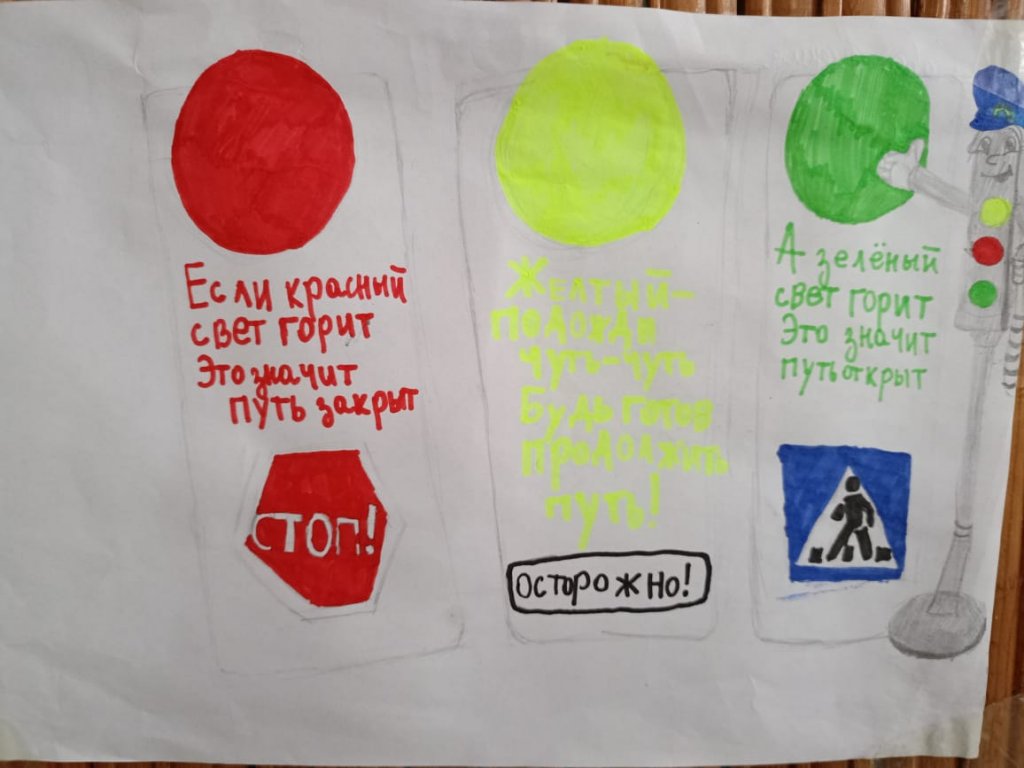 Если красный
свет горит
Это значит
путь закрыт
СТОП!
Желтый-
подожди
чуть-чуть
Будь готов
продолжить
путь!
ОСТОРОЖНО!
А зелёный
свет горит
Это значит
путь открыт